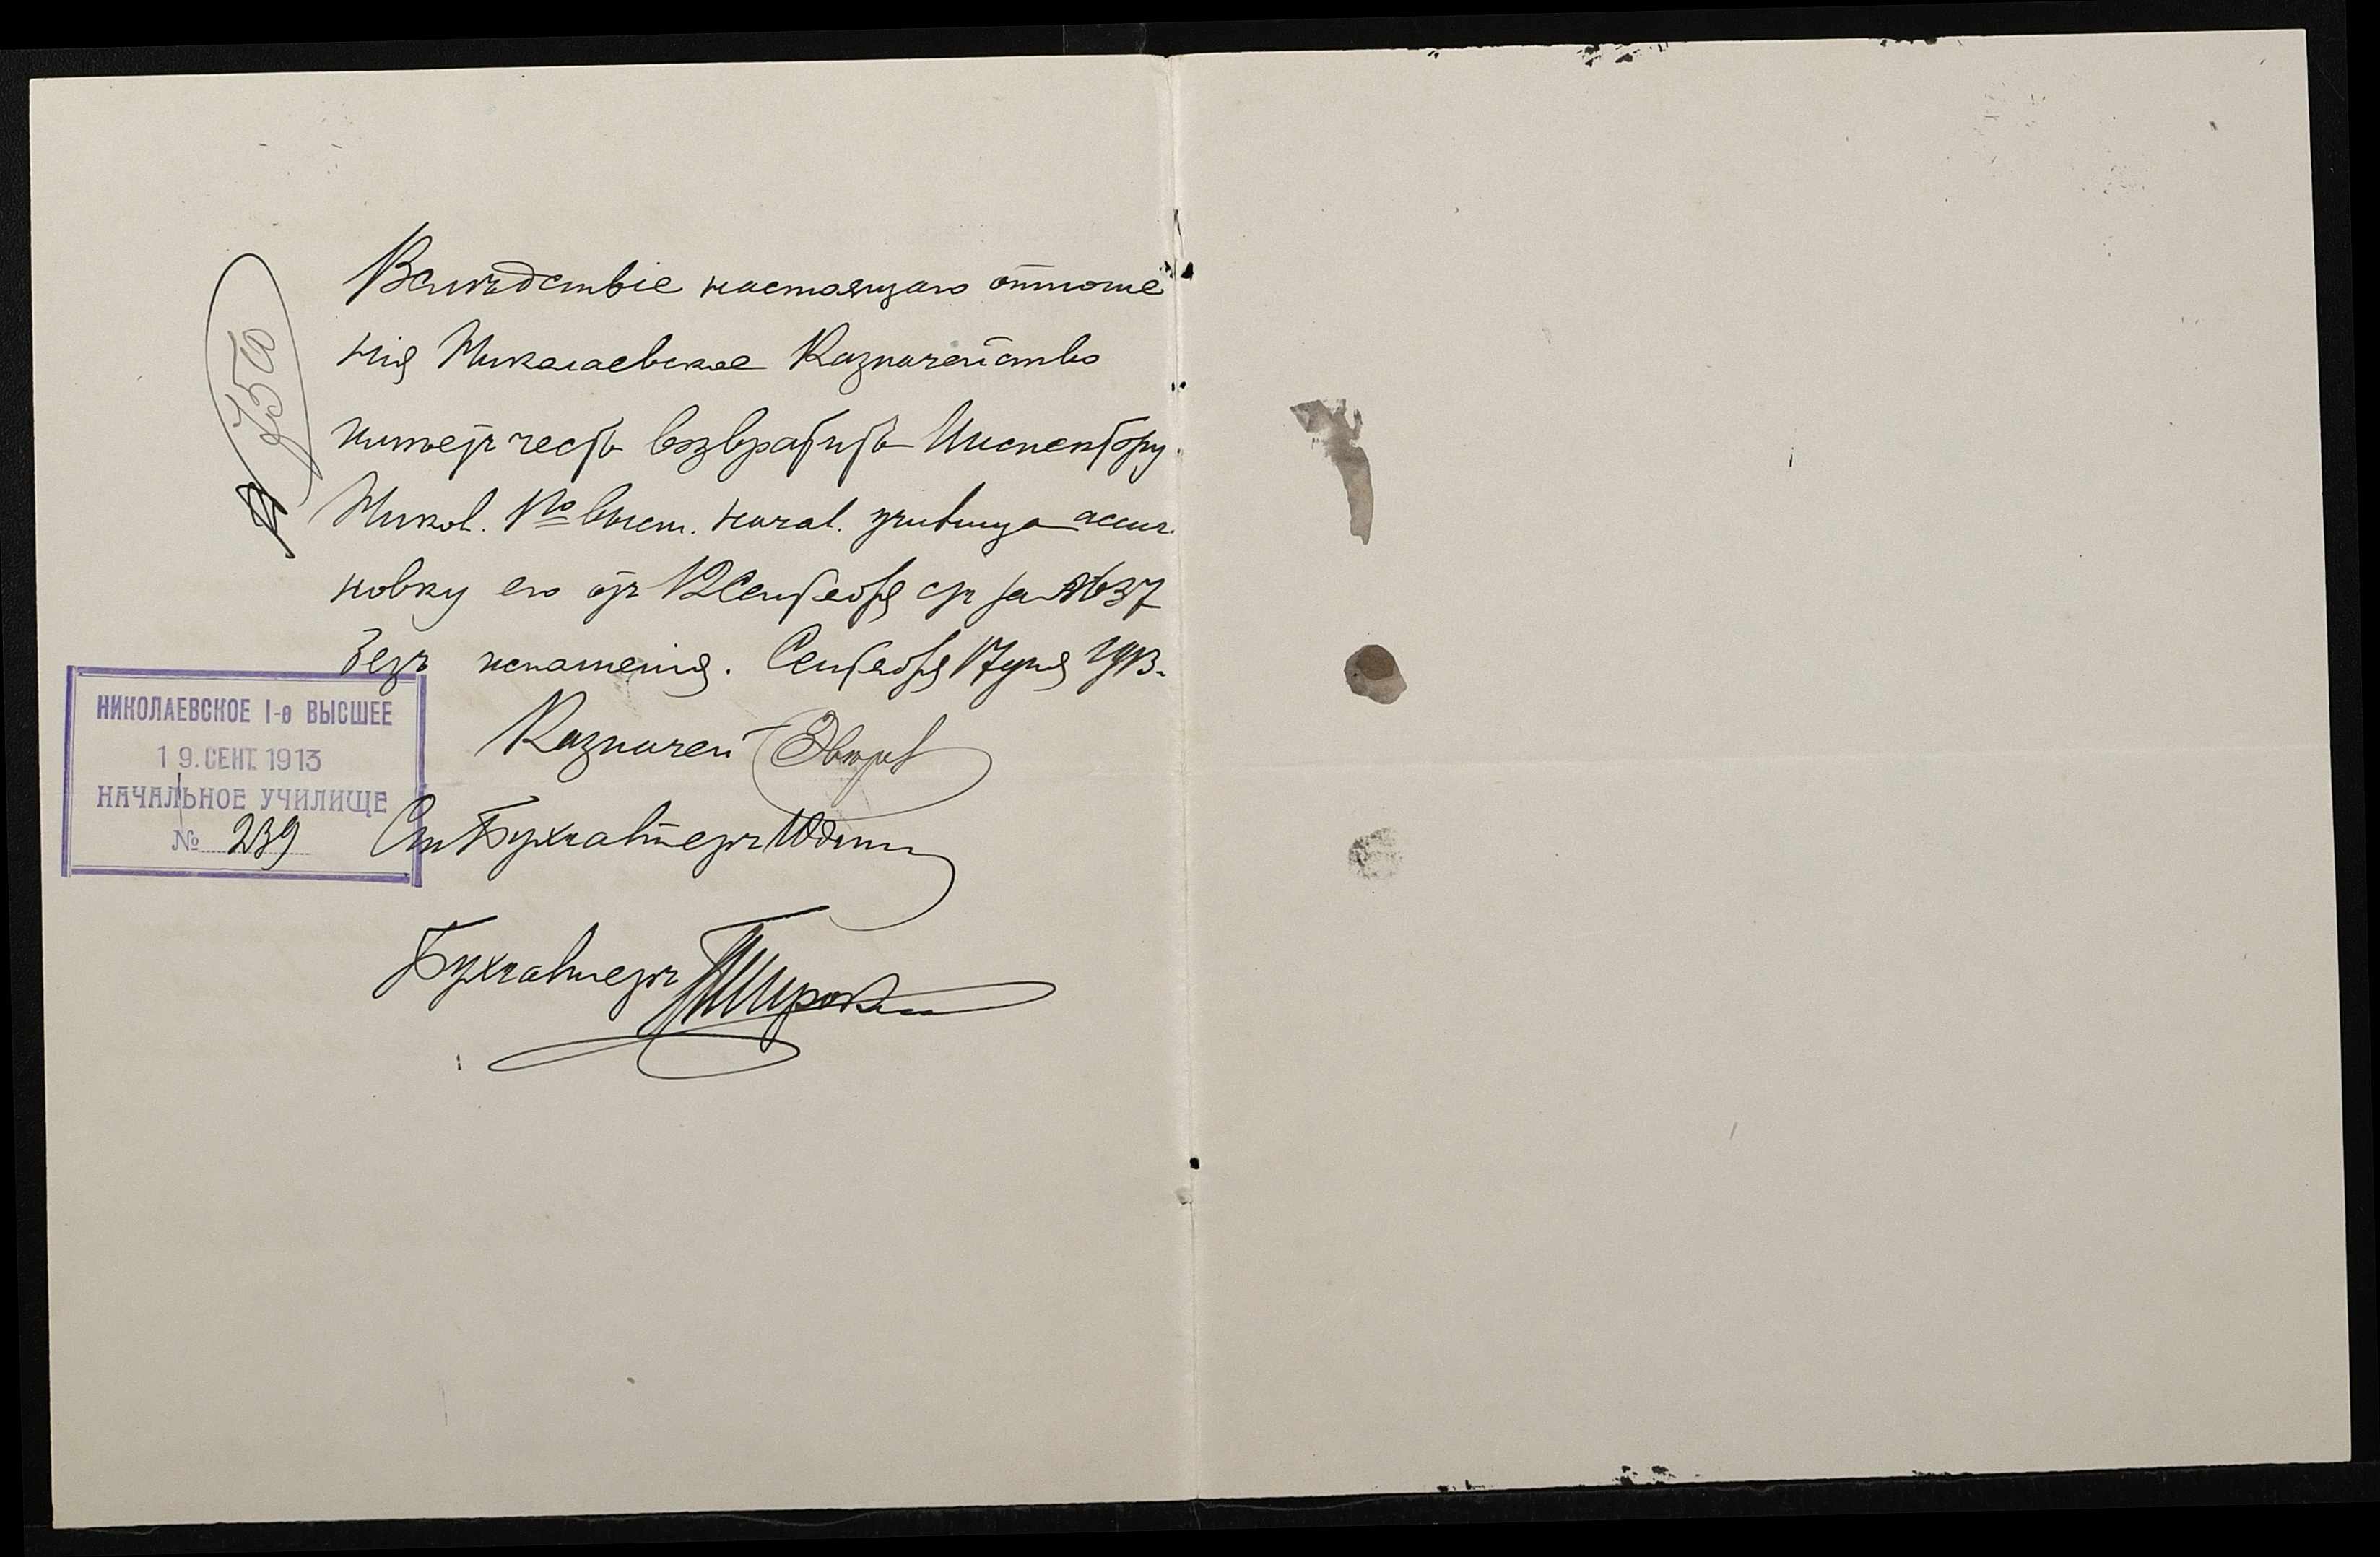 Вслѣдствіе настоящаго отноше
нія Николаевское Казначейство
имѣетъ честь возвратить Инспектору
Никол. 1го высш. начал. училища ассиг
новку его отъ 12 Сентября с/г за № 37
безъ исполненія. Сентября 17 дня 1913.
Казначей
Ст Бухгалтеръ Юдин
Бухгалтеръ
НИКОЛАЕВСКОЕ 1-е ВЫСШЕЕ
19. СЕНТ. 1913
НАЧАЛЬНОЕ УЧИЛИЩЕ
№ 239